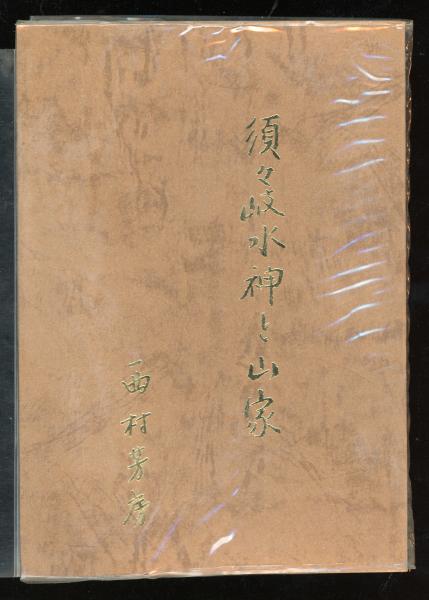 須々岐水神と山家
西村芳彦